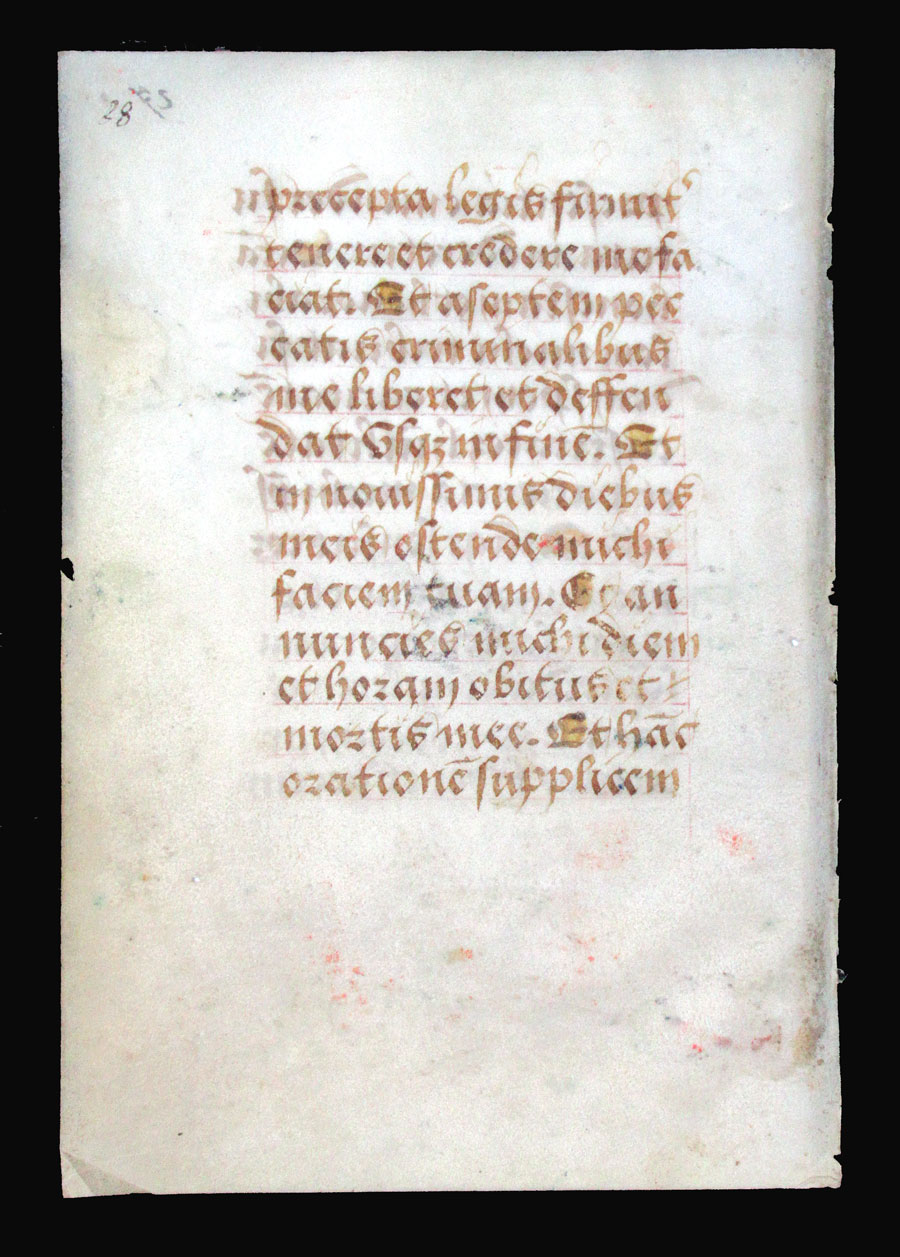 28 65
precepta legis firmit᾽
tenere et credere me fa
ciat. Et a septem pec
catis criminalibus
me liberet et deffen
dat Vsqꝫ in finē. Et
in nouissimis diebus
meis ostende michi
faciem tuam. Et an
nuncies michi diem
et horam obitus et
mortis mee. Et hāc
orationē supplicem